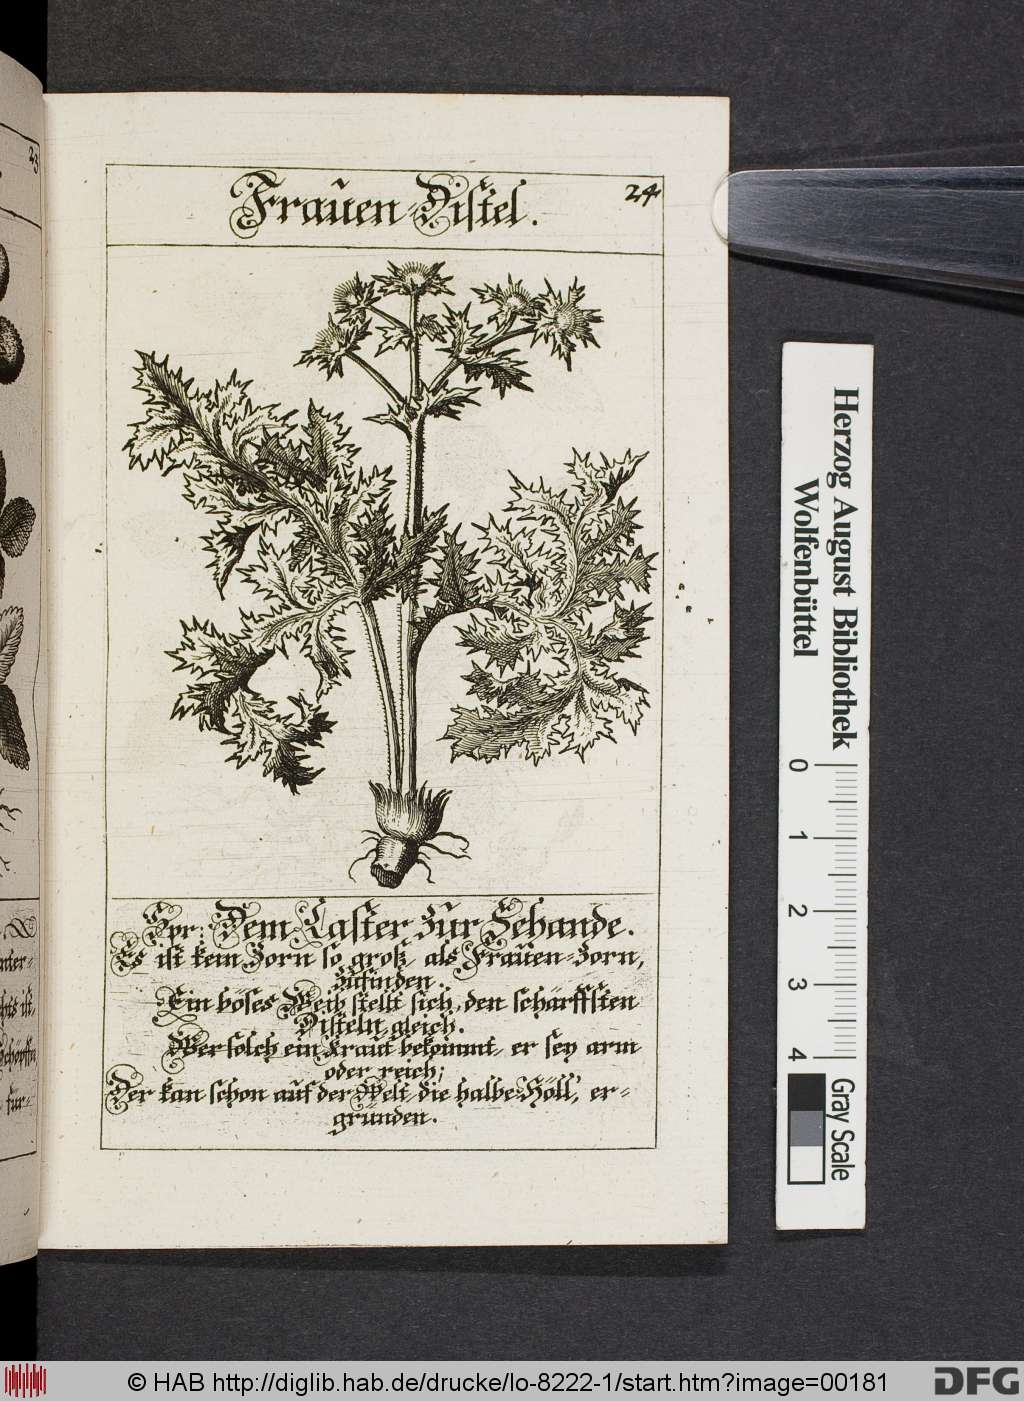 Fraŭen-Distel.
24
23
Spr: Dem Laster zŭr Schande.
Es ist kein Zorn so groß, als Fraŭen-Zorn,
zŭfinden.
Ein böses Weib stellt sich, den schärffsten
Disteln, gleich.
Wer solch ein Kraut bekommt, er sey arm
oder reich;
Der kan schon auf der Welt, die halbe Höll, er-
gründen.
nter-
für-
Herzog August Bibliothek
Wolfenbüttel
0 1 2 3 4
Gray Scale
© HAB http://diglib.hab.de/drucke/lo-8222-1/start.htm?image=00181
DFG